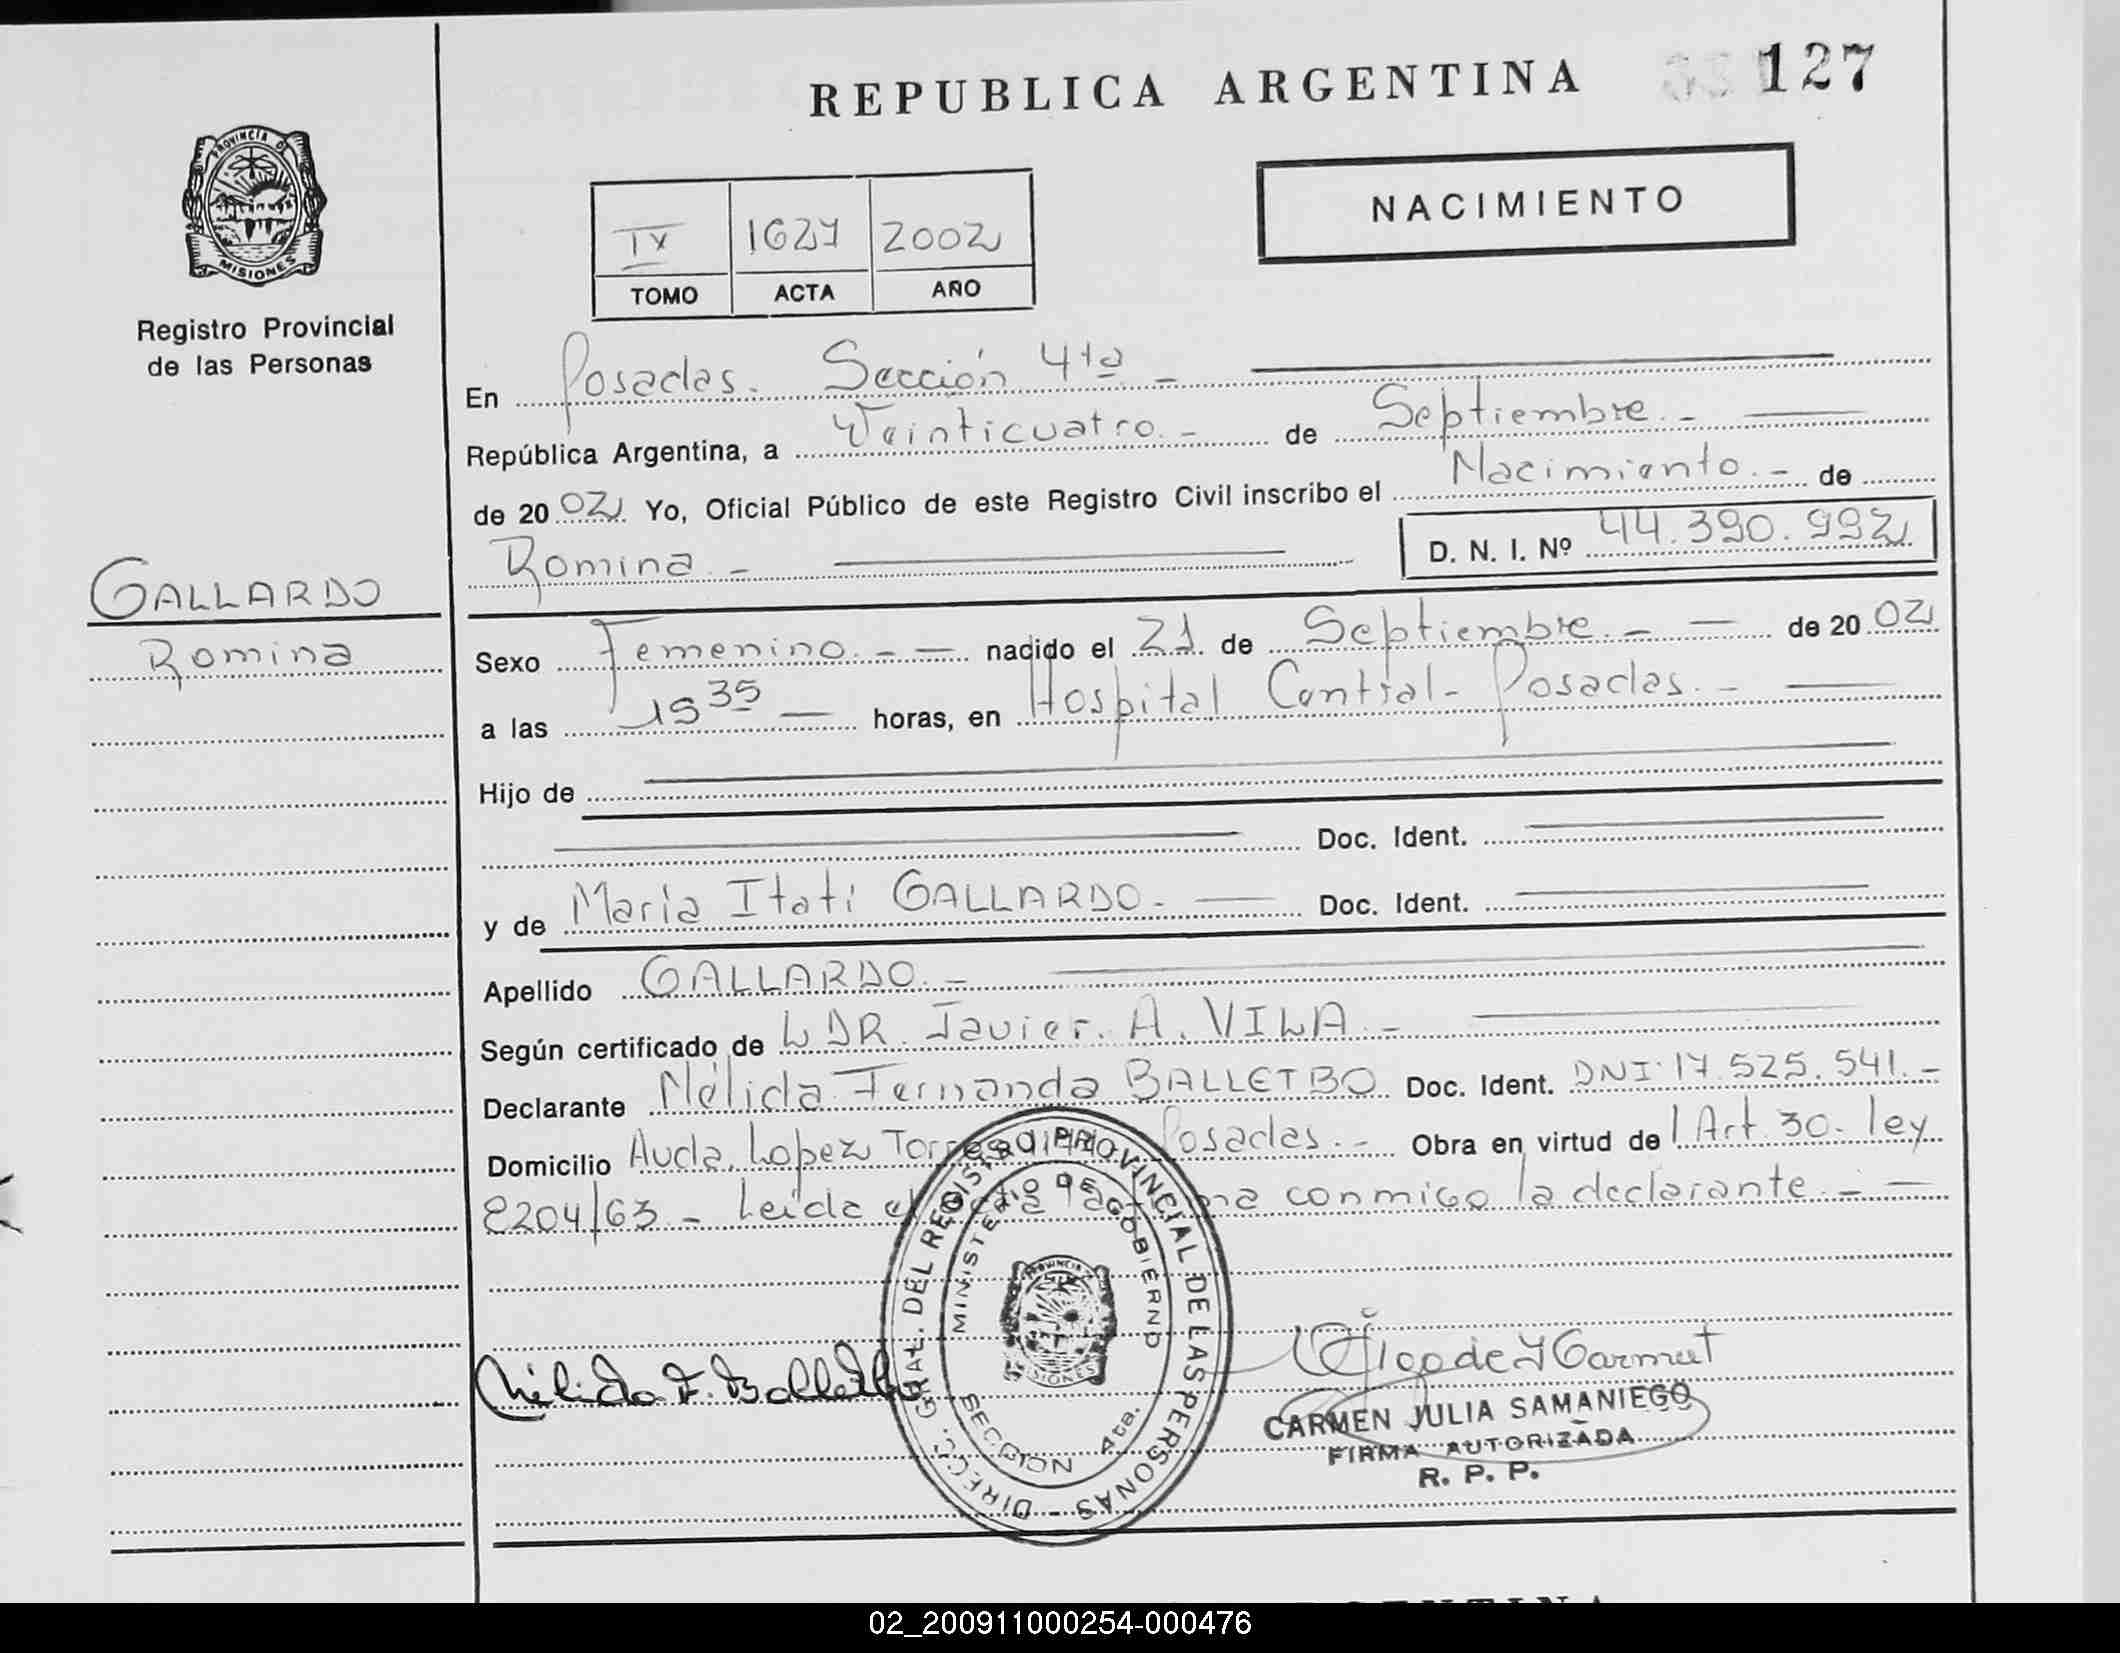 REPUBLICA ARGENTINA 127
PROVINCIA DE
MISIONES
NACIMIENTO
IX 1627 2002
TOMO ACTA AÑO
Registro Provincial
de las Personas
En Posadas. Sección 4ta. -
República Argentina, a Veinticuatro. - de Septiembre. -
de 2002 Yo, Oficial Público de este Registro Civil inscribo el Nacimiento. - de
Romina. - D. N. I. Nº 44.390.992
GALLARDO
Romina
Sexo Femenino. - - nacido el 21 de Septiembre. - - de 2002
a las 19 35 - horas, en Hospital Central - Posadas. -
Hijo de
Doc. Ident.
y de María Itatí GALLARDO. - Doc. Ident.
Apellido GALLARDO. -
Según certificado de L DR. Javier. A. VILA. -
Declarante Nélida Fernanda BALLETBO Doc. Ident. DNI. 17.525.541. -
Domicilio Avda. Lopez Torres Posadas. - Obra en virtud de l Art. 30. ley
8204/63. - Leída el conmigo la declarante. - -
DIRECC. GRAL. DEL REGISTRO PROVINCIAL DE LAS PERSONAS -
MINISTERIO DE GOBIERNO
SECCION 4ta.
CARMEN JULIA SAMANIEGO
FIRMA AUTORIZADA
R. P. P.
02_200911000254-000476